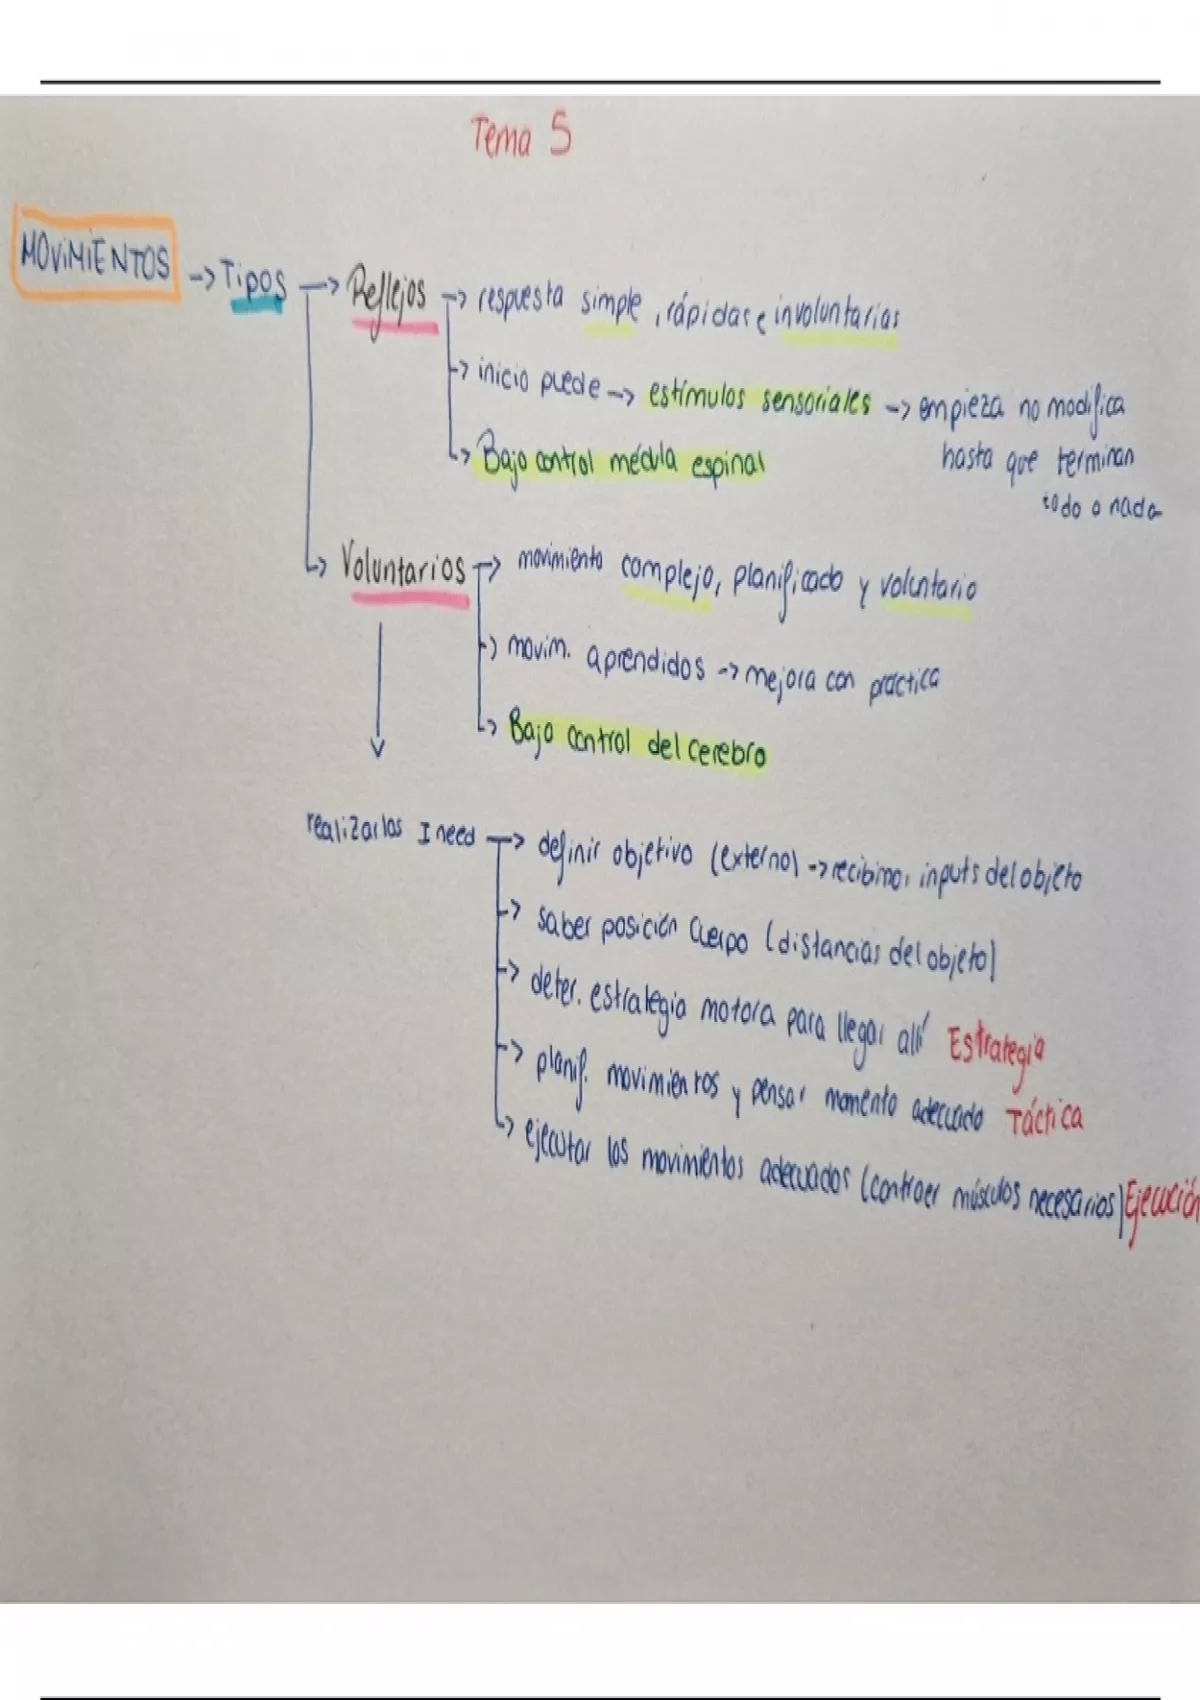 Tema 5
MOViMiENTOS -> Tipos -> Reflejos -> respuesta simple, rápidas e involuntarias
-> inicio puede -> estímulos sensoriales -> empieza no modifica
hasta que terminan
todo o nada
-> Bajo control médula espinal
-> Voluntarios -> movimiento complejo, planificado y voluntario
-> movim. aprendidos -> mejora con práctica
-> Bajo control del cerebro
realizarlos I need -> definir objetivo (externo) -> recibimos inputs del objeto
-> saber posición cuerpo (distancias del objeto)
-> deter. estrategia motora para llegar allí Estrategia
-> planif. movimientos y pensar momento adecuado Táctica
-> ejecutar los movimientos adecuados (contraer músculos necesarios) Ejecución